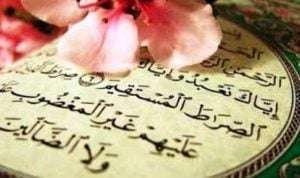 الرَّحْمَٰنِ
إِيَّاكَ نَعْبُدُ وَإِيَّاكَ
الصِّرَاطَ الْمُسْتَقِيمَ ۝ صِرَاطَ
عَلَيْهِمْ غَيْرِ الْمَغْضُوبِ
وَلَا الضَّالِّينَ